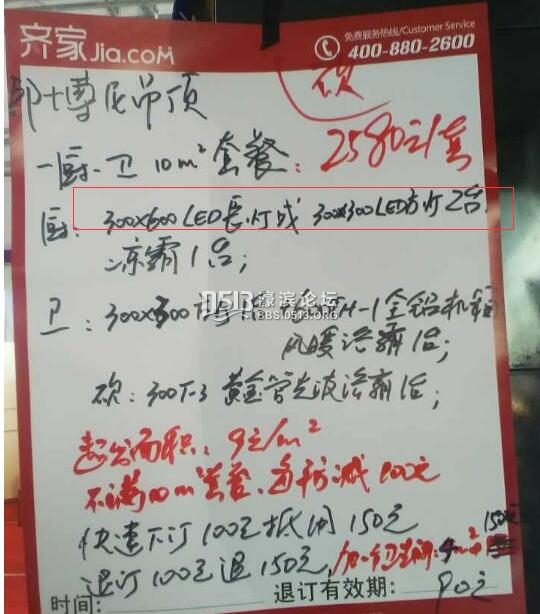 齐家Jia.com
免费服务热线/Customer Service
400-880-2600
博尼吊顶
砍
一厨一卫10m²套餐:2580元/套
厨:300×600LED长灯或300×300LED方灯2台
凉霸1台;
0513 濠滨论坛
BBS.0513.ORG
卫:300×300 H-1全铝机箱
风暖浴霸1台;
砍:300T-3黄金管光波浴霸1台;
超出面积:9元/m²
不满10m²套餐,每平方减100元
快速下订100元抵用150元
退订100元退150元,
150元
时间:
退订有效期:
90元